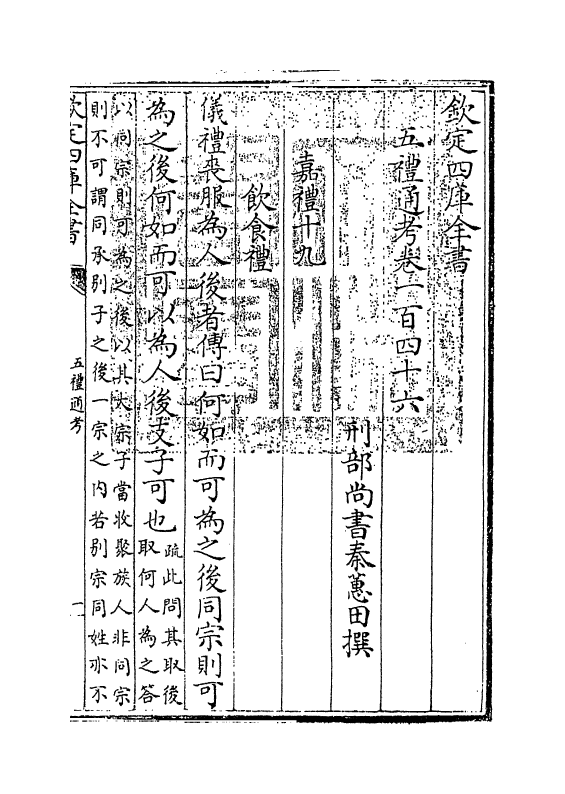 欽定四庫全書
五禮通考卷一百四十六
刑部尚書秦蕙田撰
嘉禮十九
飲食禮
儀禮喪服為人後者傳曰何如而可為之後同宗則可
為之後何如而可以為人後支子可也
疏此問其取後
取何人為之答
以同宗則可為之後以其大宗子當收聚族人非同宗
則不可謂同承别子之後一宗之内若别宗同姓亦不
欽定四庫全書
五禮通考
一